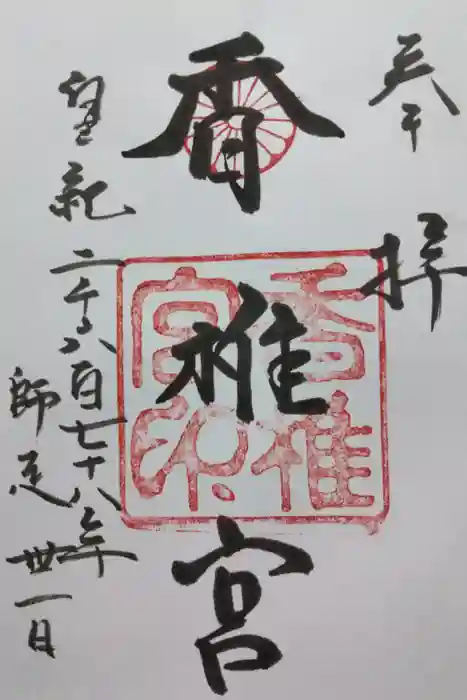 奉拝
香椎宮
香椎宮印
皇紀二千六百七十八年
師走丗一日